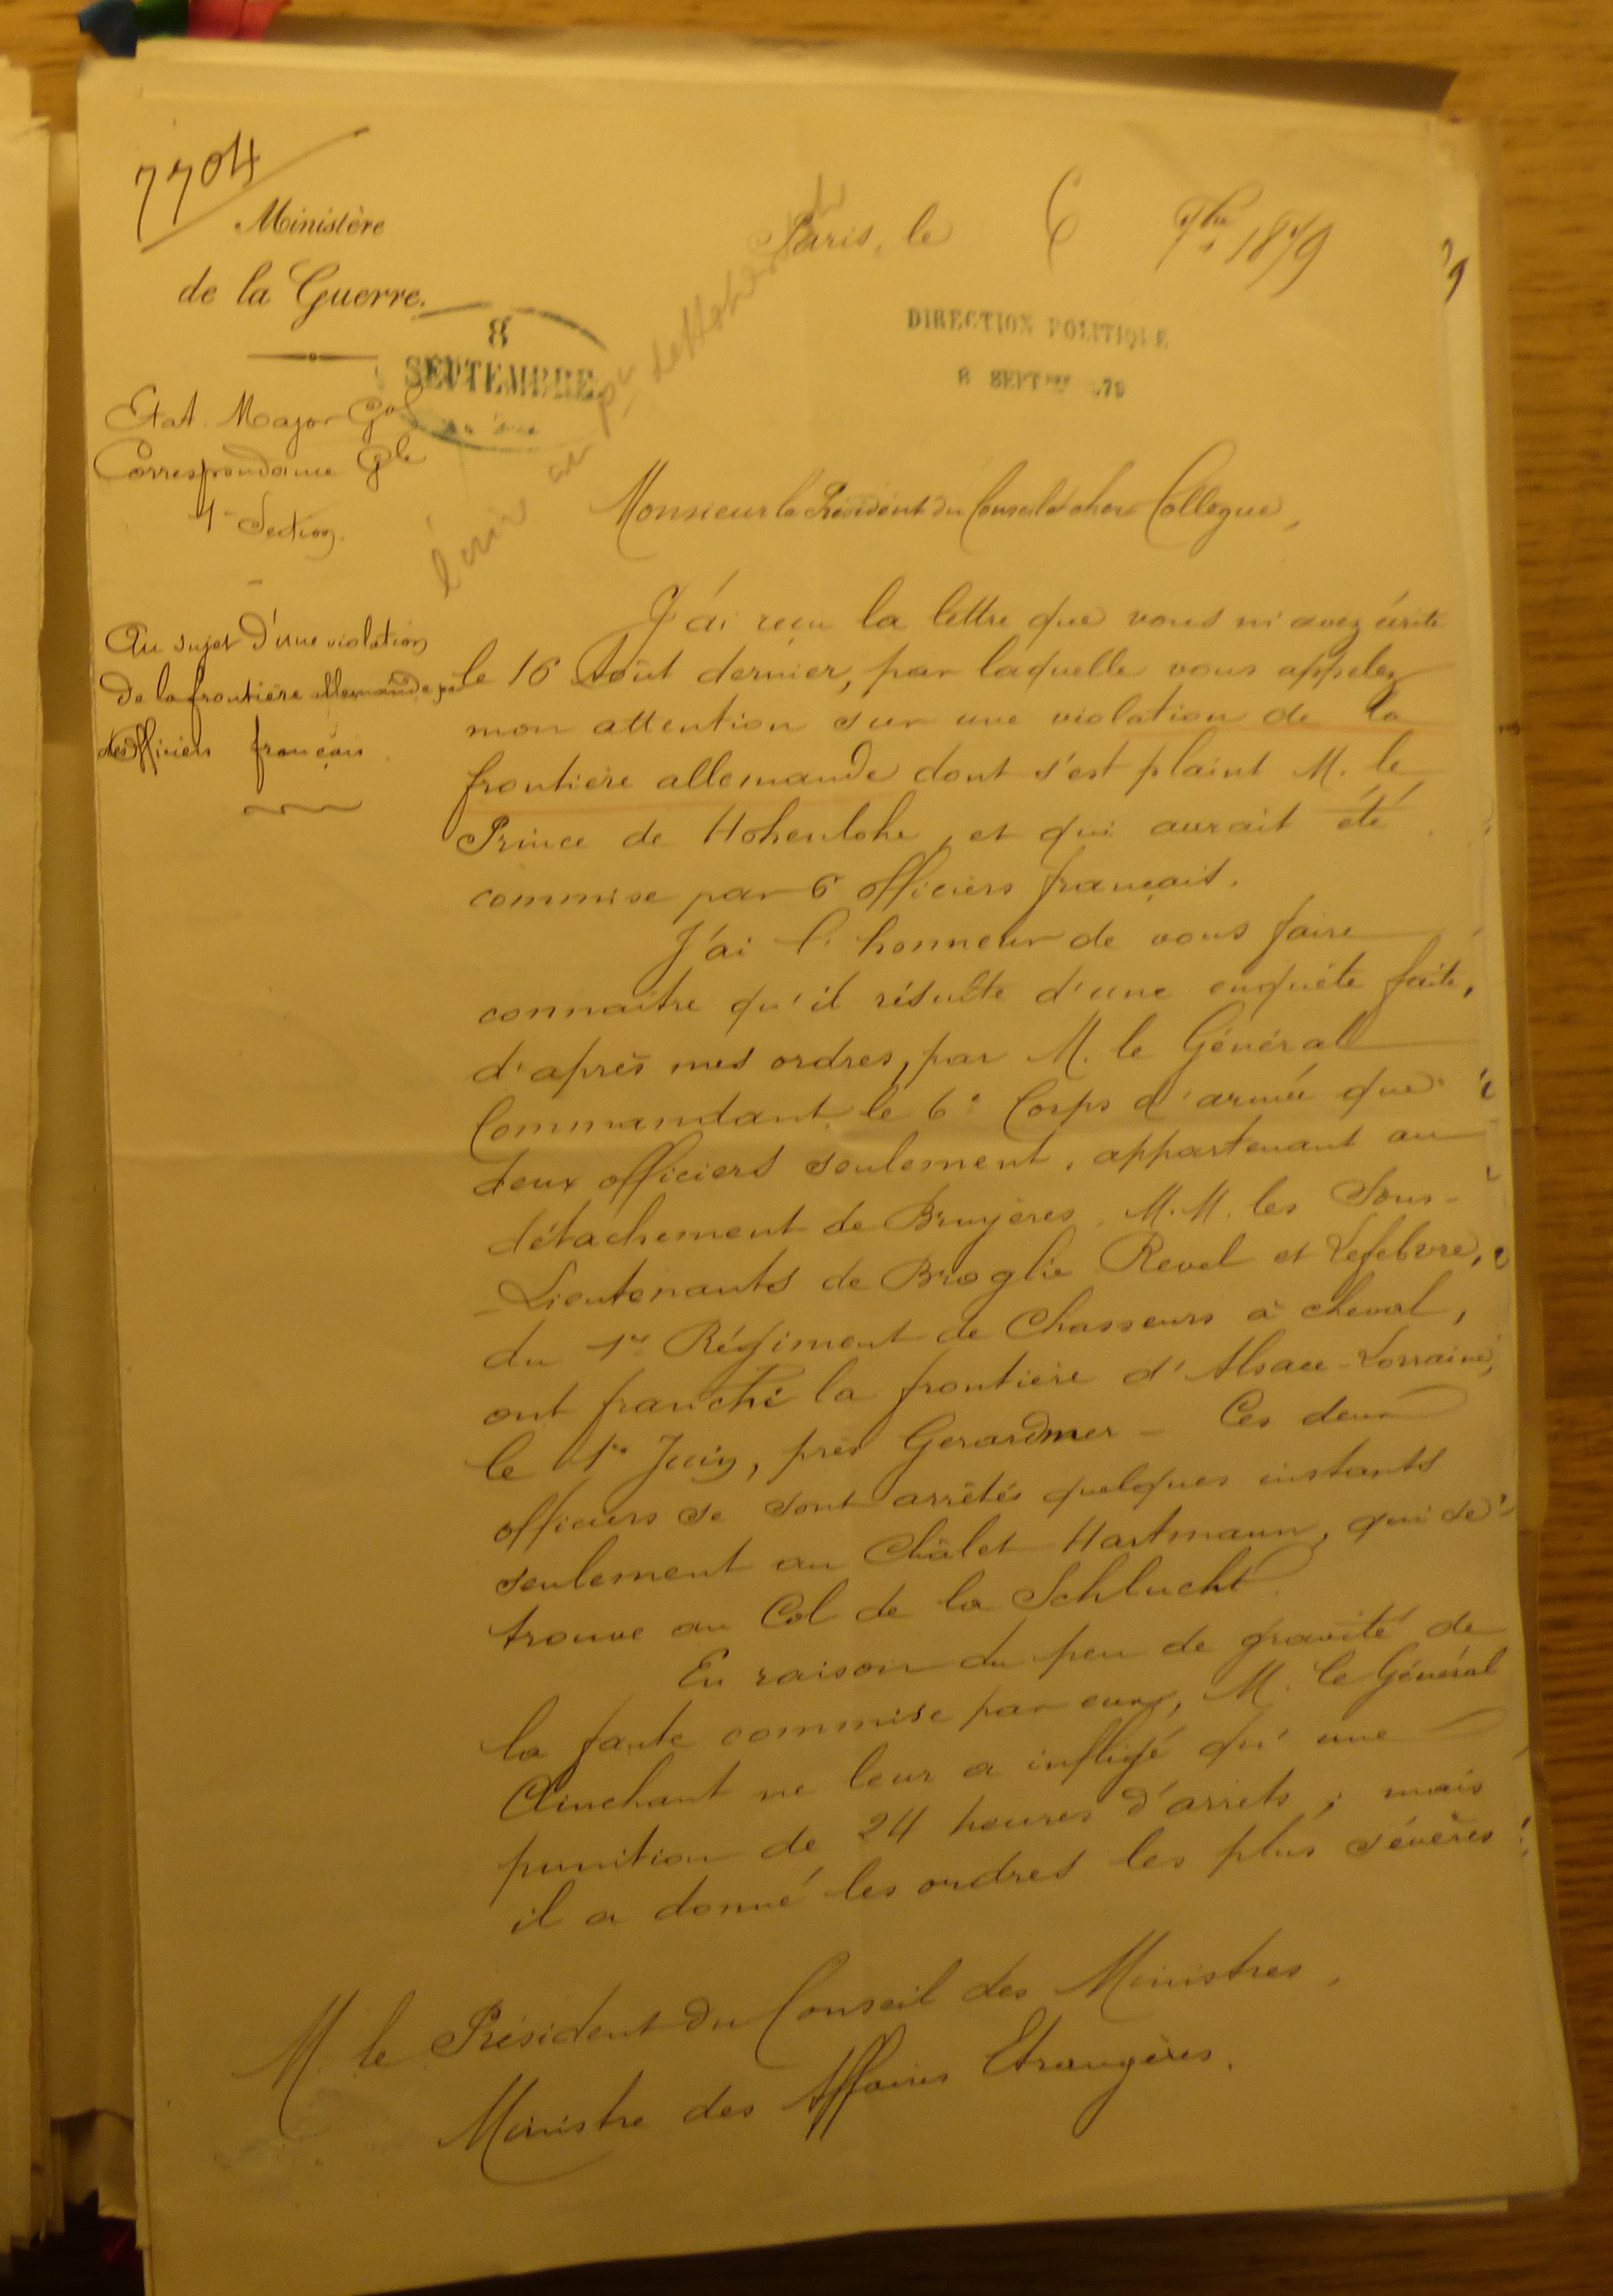 7704
Ministère
de la Guerre.
Paris, le 6 7bre 1879
8
SEPTEMBRE
DIRECTION POLITIQUE
8 SEPTBRE 1879
Etat-Major Gal
Correspondance Gle
1re Section
écrire au Pce de Hohenlohe
Monsieur le Président du Conseil et cher Collègue,
Au sujet d'une violation
de la frontière allemande par
des officiers français
J'ai reçu la lettre que vous m'avez écrite
le 16 Août dernier, par laquelle vous appelez
mon attention sur une violation de la
frontière allemande dont s'est plaint M. le
Prince de Hohenlohe, et qui aurait été
commise par 6 officiers français.
J'ai l'honneur de vous faire
connaître qu'il résulte d'une enquête faite,
d'après mes ordres, par M. le Général
Commandant le 6e Corps d'armée que
deux officiers seulement, appartenant au
détachement de Bruyères, M.M. les Sous-
-Lieutenants de Broglie Revel et Lefebvre,
du 1er Régiment de Chasseurs à cheval,
ont franchi la frontière d'Alsace-Lorraine,
le 1er Juin, près Gerardmer - Ces deux
officiers se sont arrêtés quelques instants
seulement au Châlet Hartmann, qui se
trouve au Col de la Schlucht.
En raison du peu de gravité de
la faute commise par eux, M. le Général
Clinchant ne leur a infligé qu'une
punition de 24 heures d'arrêts ; mais
il a donné les ordres les plus sévères
M le Président du Conseil des Ministres,
Ministre des Affaires Etrangères.